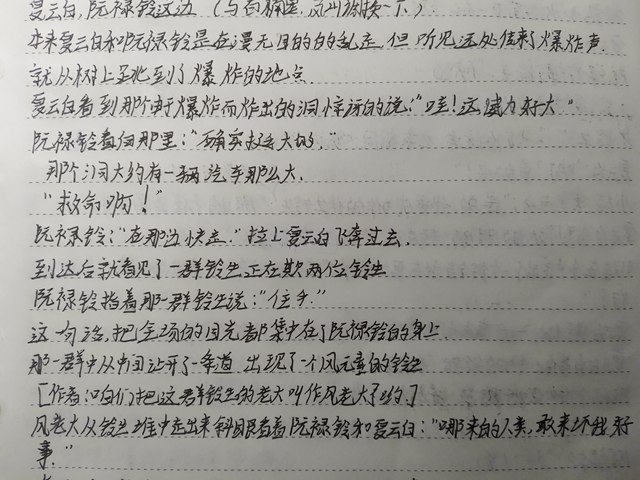 夏云白,阮禄铃这边
本来夏云白和阮禄铃是在漫无目的的乱走,但听见远处传来了爆炸声
就从树上到了爆炸的地点
夏云白看到那个由于爆炸而炸出的洞惊讶的说:"哇!这威力好大"
阮禄铃看向那里:"确实挺大的."
那个洞大约有一辆汽车那么大.
"救命啊!"
阮禄铃:"在那边快走."拉上夏云白飞奔过去.
到达后就看见了一群铃生正在欺两位铃生
阮禄铃指着那一群铃生说:"住手."
这句话,把全场的目光都集中在了阮禄铃的身上
那一群中从中间让开了一条道 出现了一个风元素的铃生
[作者:咱们把这群铃生的老大叫作风老大了哟.]
风老大从铃生堆中走出来斜眼看着阮禄铃和夏云白:"哪来的人类,敢来坏我好
事."